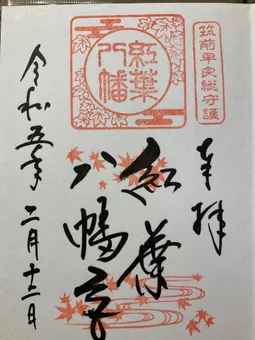 筑前早良総守護
奉拝
紅葉
八幡宮
紅葉
八幡
令和五年二月十二日